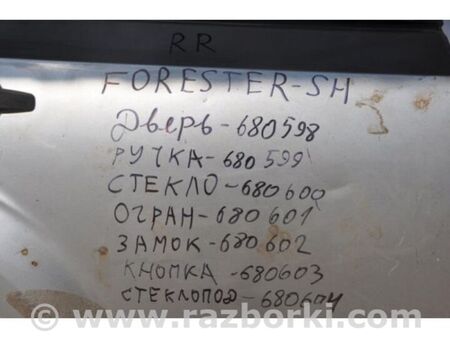 RR
FORESTER-SH
ДВЕРЬ-680598
РУЧКА-680599
СТЕКЛО-680600
ОГРАН-680601
ЗАМОК-680602
КНОПКА-680603
СТЕКЛОПОД-680604
www.razborki.com